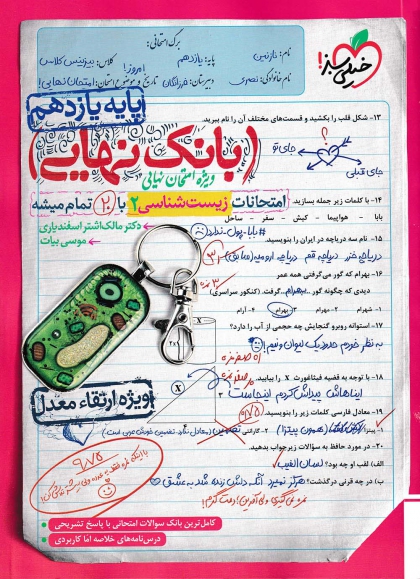 برگ امتحانی:
نام: نازنین
پایه: یازدهم
کلاس: بیزینس کلاس
نام خانوادگی: نصری
دبیرستان: فرزانگان
تاریخ و موضوع امتحان: امتحان نهایی!
امروز!
خیلی سبز!
پایه یازدهم
۱۳- شکل قلب را بکشید و قسمت‌های مختلف آن را نام ببرید.
جای تو
جای قبلی
(بانک نهایی)
ویژه امتحان نهایی
۱۴- با کلمات زیر جمله بسازید.
امتحانات زیست‌شناسی ۲ با ۲۰ تمام میشه
بابا - هواپیما - کیش - سفر - ساحل
دکتر مالک‌اشتر اسفندیاری
موسی بیات
#بابا-پول-ندارد
۱۵- نام سه دریاچه در ایران را بنویسید.
دریاچه خزر دریاچه قم دریاچه ارومیه (سابق)
۱۶- بهرام که گور می‌گرفتی همه عمر
دیدی که چگونه گور ...بهرام... گرفت. (کنکور سراسری)
۱- شهرام ۲- بهرام ۳- بهرام ۴- آرام
۱۷- استوانه روبرو گنجایش چه حجمی از آب را دارد؟
به نظر خودم حدود یک لیوان و نیم!
۱۸- با توجه به قضیه فیثاغورث X را بیابید.
X
ایناهاش پیداش کردم اینجاست
ویژه ارتقاء معدل
۱۹- معادل فارسی کلمات زیر را بنویسید.
۲۰- در مورد حافظ به سؤالات زیر جواب بدهید.
الف) لقب او چه بود؟ لسان الغیب
ب) در چه قرنی درگذشت؟ هرگز نمیرد آنکه دلش زنده شد به عشق
۹/۷۵
کامل‌ترین بانک سوالات امتحانی با پاسخ تشریحی
درس‌نامه‌های خلاصه اما کاربردی